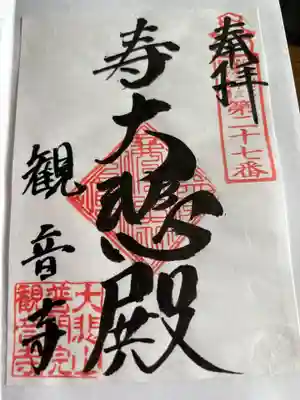 奉拝
第二十七番
寿大悲殿
観音寺
大悲山
普門院
観音寺